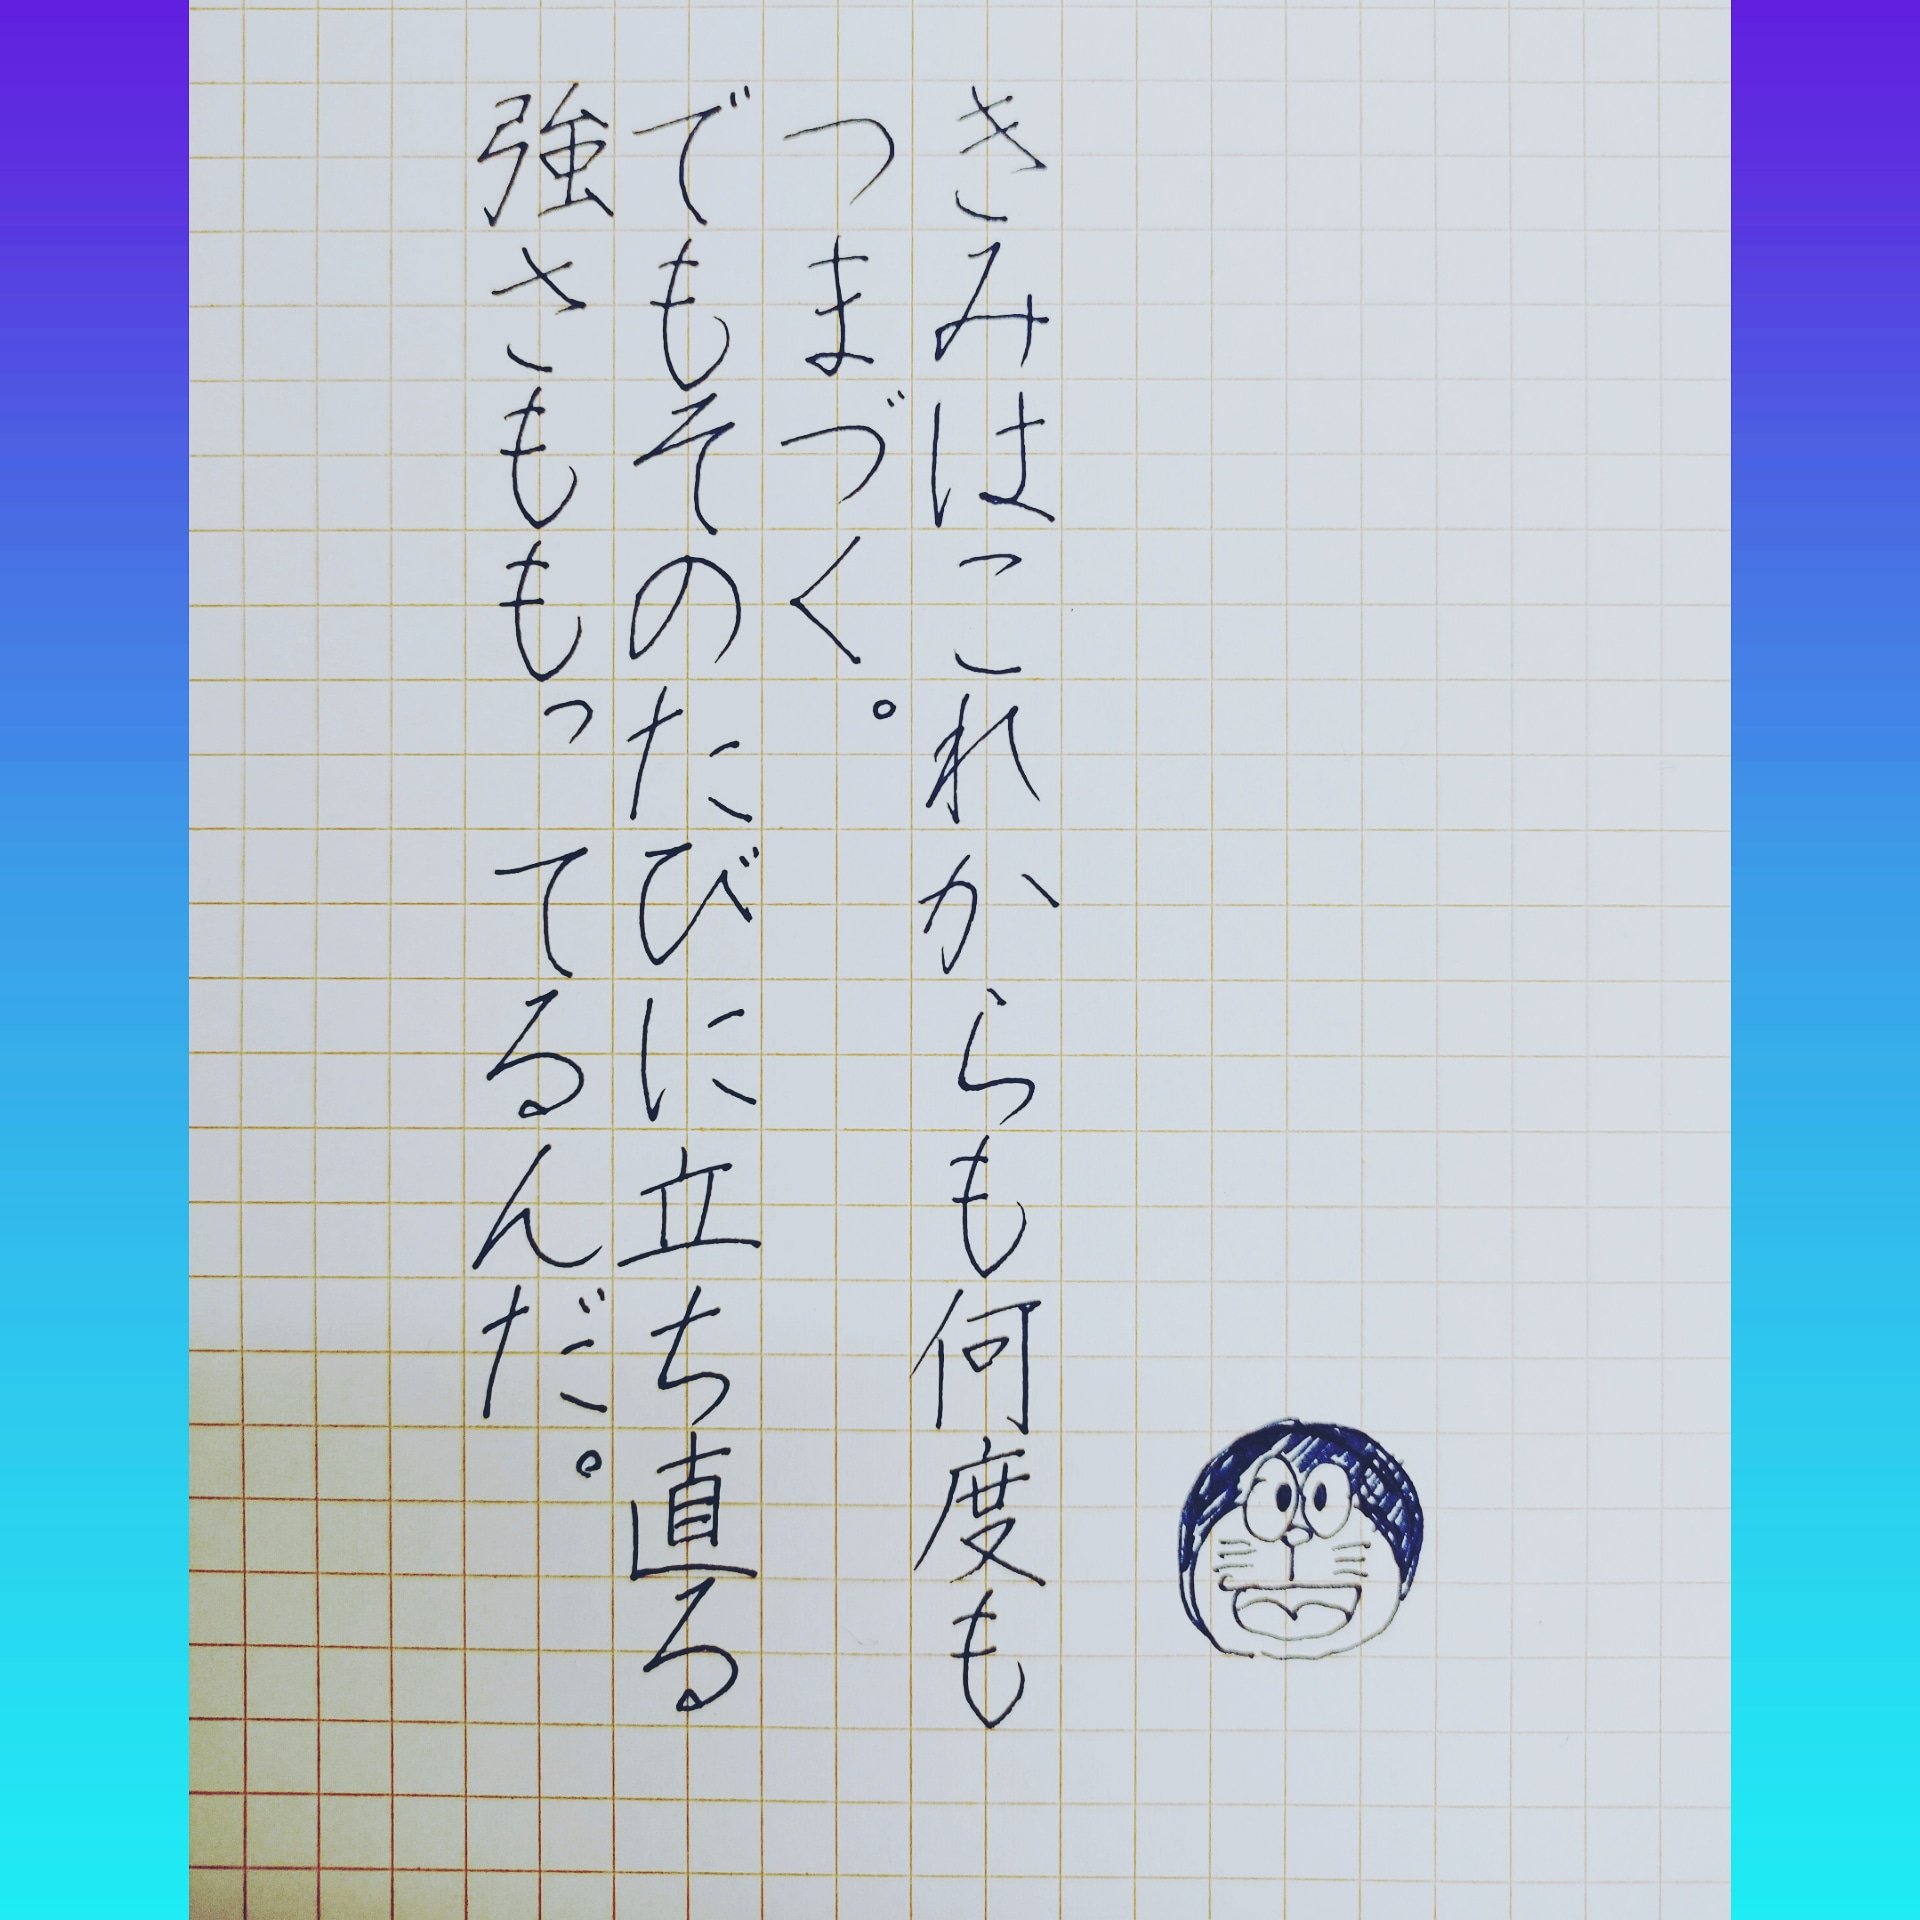 きみはこれからも何度も
つまづく。
でもそのたびに立ち直る
強さももってるんだ。